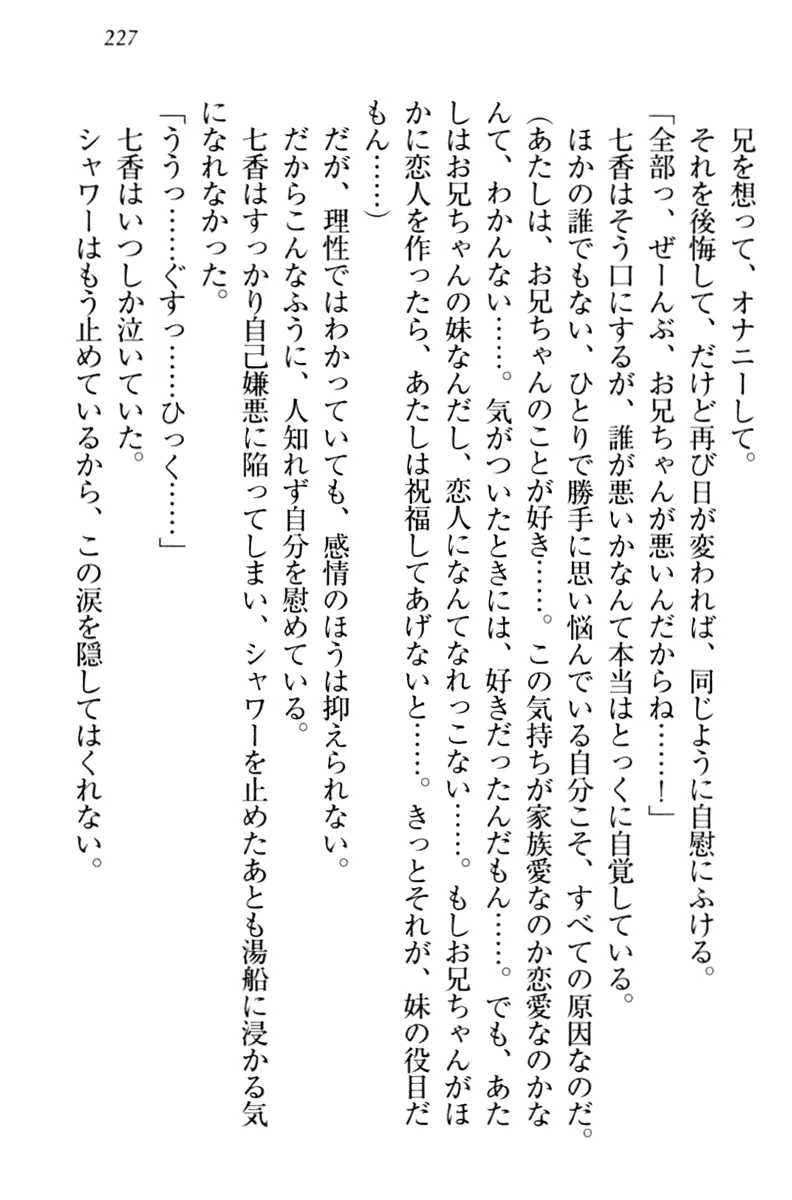 227
兄を想って、オナニーして。
それを後悔して、だけど再び日が変われば、同じように自慰にふける。
「全部っ、ぜーんぶ、お兄ちゃんが悪いんだからね……！」
七香はそう口にするが、誰が悪いかなんて本当はとっくに自覚している。
ほかの誰でもない、ひとりで勝手に思い悩んでいる自分こそ、すべての原因なのだ。
（あたしは、お兄ちゃんのことが好き……。この気持ちが家族愛なのか恋愛なのかな
んて、わかんない……。気がついたときには、好きだったんだもん……。でも、あた
しはお兄ちゃんの妹なんだし、恋人になんてなれっこない……。もしお兄ちゃんがほ
かに恋人を作ったら、あたしは祝福してあげないと……。きっとそれが、妹の役目だ
もん……）
だが、理性ではわかっていても、感情のほうは抑えられない。
だからこんなふうに、人知れず自分を慰めている。
七香はすっかり自己嫌悪に陥ってしまい、シャワーを止めたあとも湯船に浸かる気
になれなかった。
「ううっ……ぐすっ……ひっく……」
七香はいつしか泣いていた。
シャワーはもう止めているから、この涙を隠してはくれない。